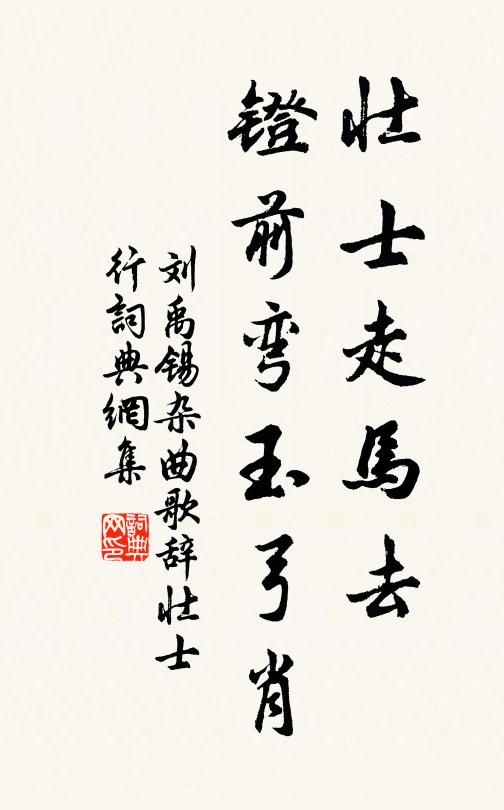 壮士走馬去
鐙前弯玉弓肖
刘禹锡杂曲歌辞壮士
行詞典網集
詞典
网印